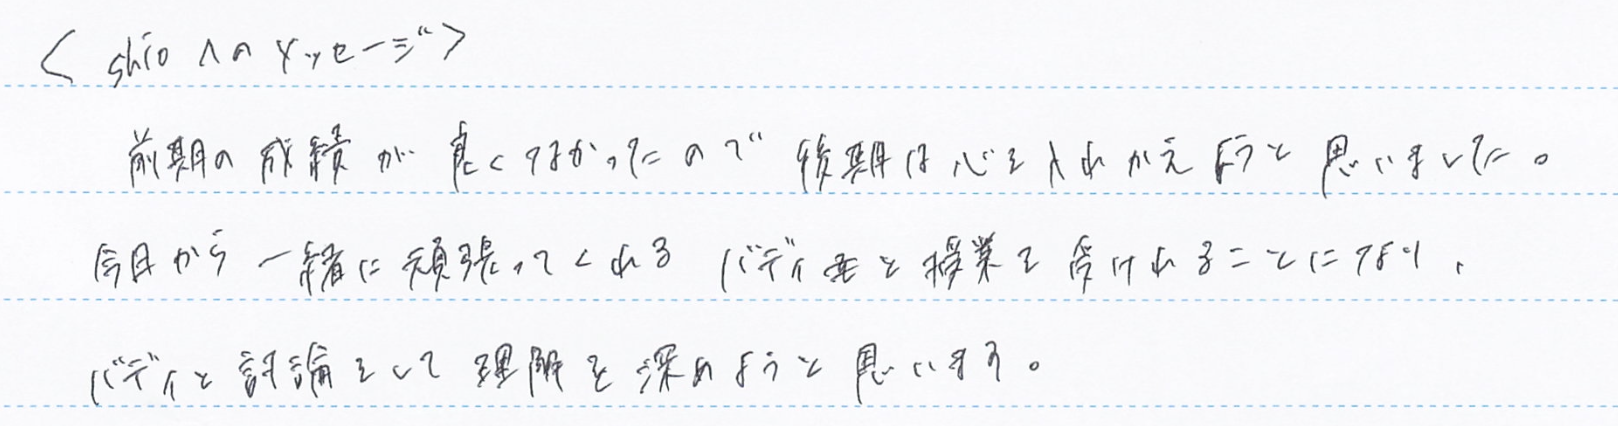 <shioへのメッセージ>
前期の成績が良くなかったので後期は心を入れかえようと思いました。
今日から一緒に頑張ってくれるバディと授業を受けれることになり、
バディと討論をして理解を深めようと思います。